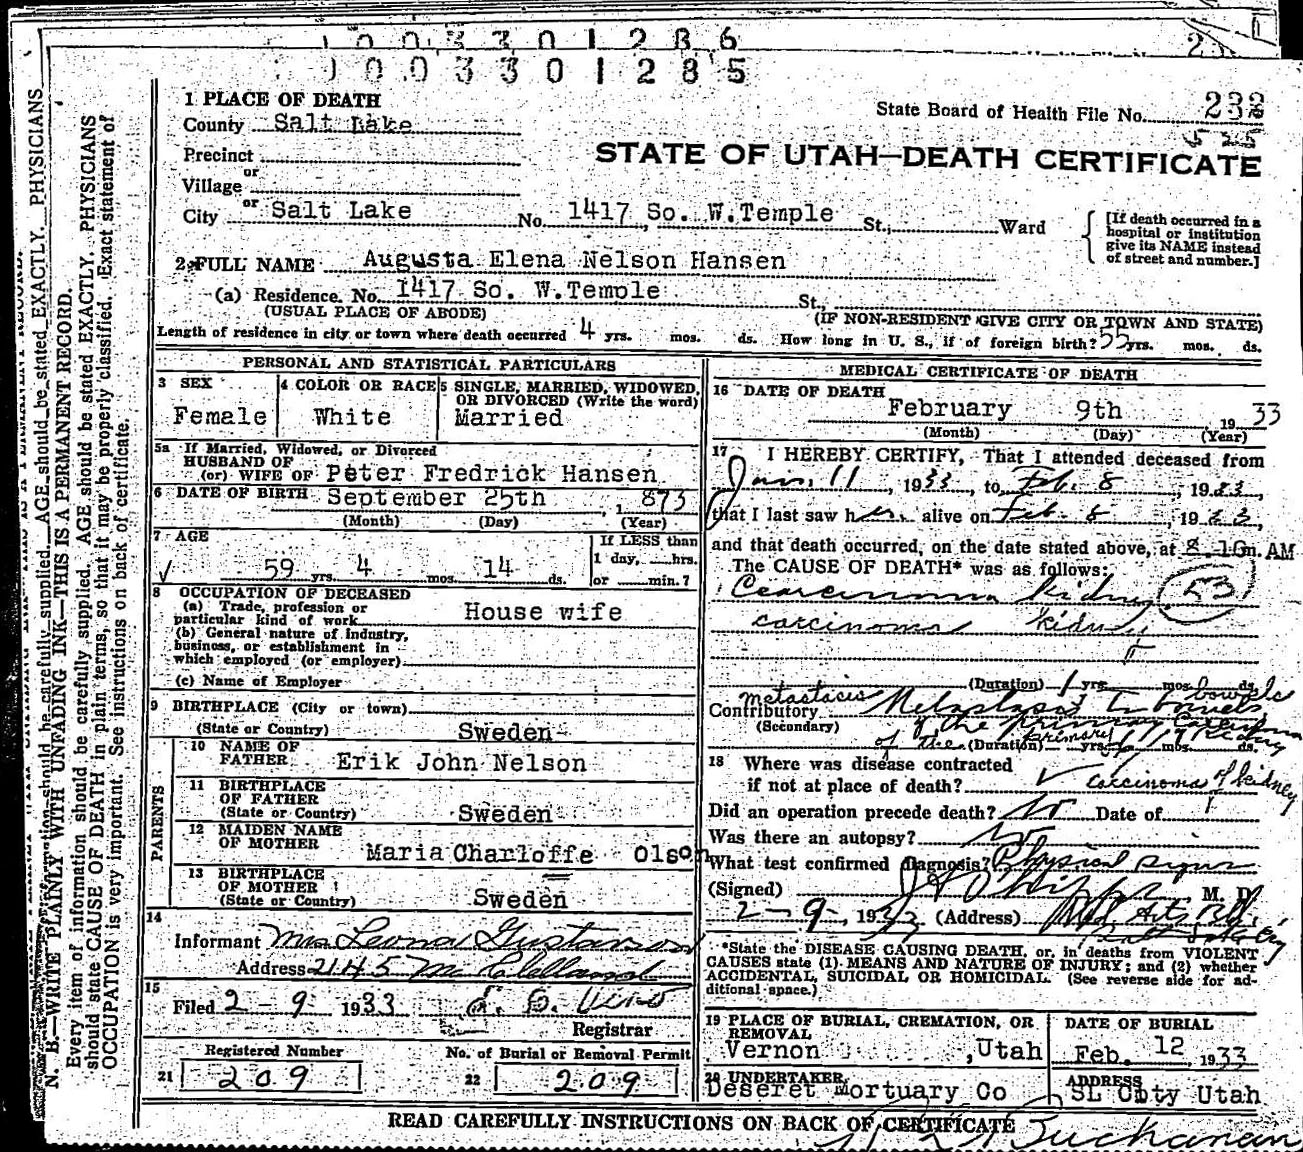 1003301286
1003301285
1 PLACE OF DEATH
State Board of Health File No. 232
County Salt Lake
525
Precinct
STATE OF UTAH—DEATH CERTIFICATE
or
Village
or
City Salt Lake No. 1417 So. W.Temple St., Ward
[If death occurred in a
hospital or institution
give its NAME instead
of street and number.]
2 FULL NAME Augusta Elena Nelson Hansen
(a) Residence. No. 1417 So. W.Temple St.,
(USUAL PLACE OF ABODE) (IF NON-RESIDENT GIVE CITY OR TOWN AND STATE)
Length of residence in city or town where death occurred 4 yrs. mos. ds. How long in U. S., if of foreign birth? 55 yrs. mos. ds.
PERSONAL AND STATISTICAL PARTICULARS
3 SEX
Female
4 COLOR OR RACE
White
5 SINGLE, MARRIED, WIDOWED,
OR DIVORCED (Write the word)
Married
5a If Married, Widowed, or Divorced
HUSBAND OF
(or) WIFE OF Peter Fredrick Hansen
6 DATE OF BIRTH September 25th , 1873
(Month) (Day) (Year)
7 AGE
59 yrs. 4 mos. 14 ds.
If LESS than
1 day, hrs.
or min.?
8 OCCUPATION OF DECEASED
(a) Trade, profession or
particular kind of work House wife
(b) General nature of industry,
business, or establishment in
which employed (or employer)
(c) Name of Employer
9 BIRTHPLACE (City or town)
(State or Country) Sweden
PARENTS
10 NAME OF
FATHER Erik John Nelson
11 BIRTHPLACE
OF FATHER
(State or Country) Sweden
12 MAIDEN NAME
OF MOTHER Maria Charloffe Olson
13 BIRTHPLACE
OF MOTHER
(State or Country) Sweden
14
Informant Mrs Leona Gustavson
Address 2145 McClelland
15
Filed 2-9 1933
Registrar
Registered Number
21 209
No. of Burial or Removal Permit
22 209
MEDICAL CERTIFICATE OF DEATH
16 DATE OF DEATH
February 9th 1933
(Month) (Day) (Year)
17 I HEREBY CERTIFY, That I attended deceased from
Jan. 11, 1933, to Feb. 8, 1933,
that I last saw her alive on Feb. 8, 1933,
and that death occurred, on the date stated above, at 8.10 m. AM
The CAUSE OF DEATH* was as follows:
Carcinoma Kidney 53
carcinoma kidney
(Duration) 1 yrs. mos. ds.
metastasis bowels
Contributory Metastasis to bowels
(Secondary) of the primary
primary
of the (Duration) yrs. mos. ds.
18 Where was disease contracted
if not at place of death? carcinoma of kidney
Did an operation precede death? No Date of
Was there an autopsy? No
What test confirmed diagnosis? Physical signs
(Signed) M. D.
2-9, 1933 (Address) Med. Arts Bld.
*State the DISEASE CAUSING DEATH, or, in deaths from VIOLENT
CAUSES state (1) MEANS AND NATURE OF INJURY; and (2) whether
ACCIDENTAL, SUICIDAL OR HOMICIDAL. (See reverse side for ad-
ditional space.)
19 PLACE OF BURIAL, CREMATION, OR
REMOVAL
Vernon ,Utah
DATE OF BURIAL
Feb. 12 1933
20 UNDERTAKER
Deseret Mortuary Co
ADDRESS
SL City Utah
READ CAREFULLY INSTRUCTIONS ON BACK OF CERTIFICATE
Buchanan
N. B.—WRITE PLAINLY WITH UNFADING INK—THIS IS A PERMANENT RECORD.
Every item of information should be carefully supplied. AGE should be stated EXACTLY. PHYSICIANS
should state CAUSE OF DEATH in plain terms, so that it may be properly classified. Exact statement of
OCCUPATION is very important. See instructions on back of certificate.